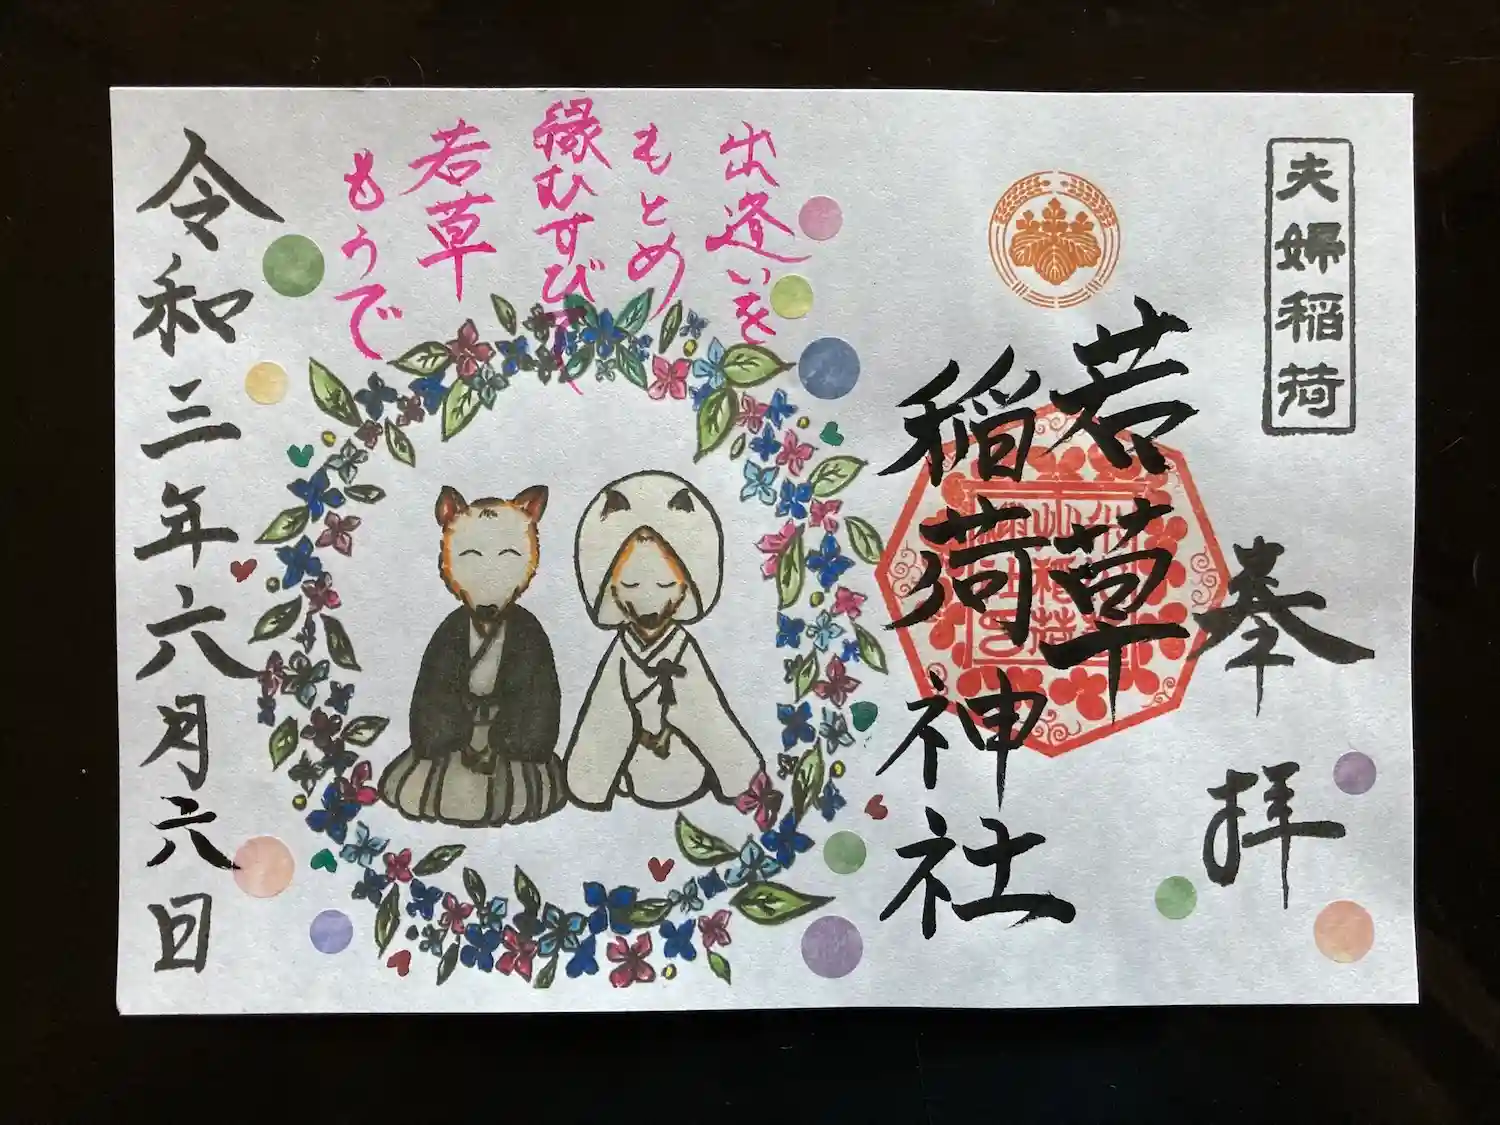 夫婦稲荷
奉拝
若草
稲荷神社
出逢いを
もとめ
縁むすびて
若草
もうで
令和三年六月六日